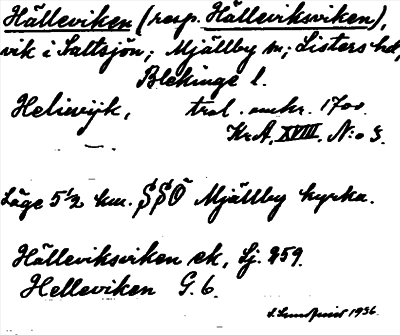 Hälleviken (resp. Hälleviksviken),
vik i Saltsjön; Mjällby sn; Listers hd,
Blekinge l.
Heliwijk, trol. omkr. 1700.
Kr.A. XVIII. N:o 3.
Läge 5 1/2 km. SSÖ Mjällby kyrka.
Hälleviksviken ek, Sj. 259.
Helleviken G. 6.
1936.